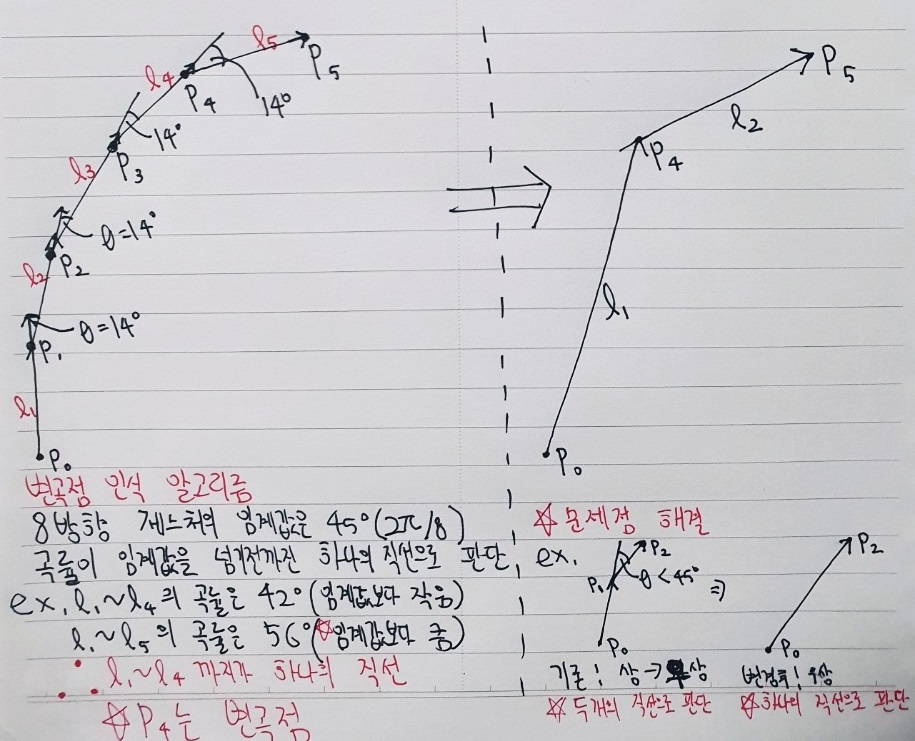 l₅
P₅
l₄
P₄
14°
14°
l₃
P₃
θ=14°
l₂
P₂
θ=14°
P₁
l₁
P₀
P₅
l₂
P₄
l₁
P₀
변곡점 인식 알고리즘
8방향 제스처의 임계값은 45°(2π/8)
곡률이 임계값을 넘기전까진 하나의 직선으로 판단
ex, l₁~l₄의 곡률은 42° (임계값보다 작음)
l₁~l₅의 곡률은 56° (☆임계값보다 큼)
∴ l₁~l₄ 까지가 하나의 직선
☆ P₄는 변곡점
☆ 문제점 해결
ex,
P₂
P₁
θ<45°
⇒
P₀
P₂
P₀
기존: 상→우상
변경후: 우상
☆ 두개의 직선으로 판단
☆ 하나의 직선으로 판단